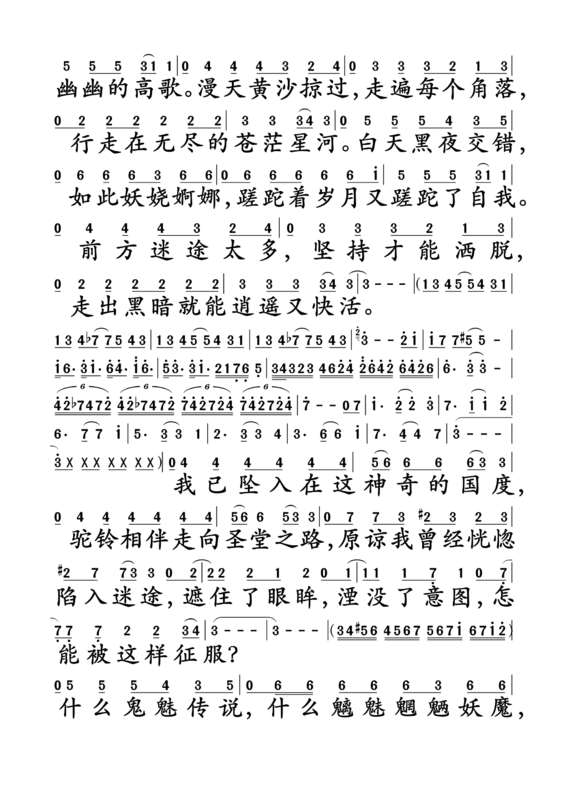 5 5 5 31 1 | 0 4 4 4 3 2 4 | 0 3 3 3 2 1 3 |
幽幽的高歌。漫天黄沙掠过，走遍每个角落，
0 2 2 2 2 2 2 | 3 3 34 3 | 0 5 5 5 4 3 5 |
行走在无尽的苍茫星河。白天黑夜交错，
0 6 6 6 3 6 6 | 0 6 6 6 6 6 i | 5 5 5 31 1 |
如此妖娆婀娜，蹉跎着岁月又蹉跎了自我。
0 4 4 4 3 2 4 | 0 3 3 3 2 1 3 |
前方迷途太多，坚持才能洒脱，
0 2 2 2 2 2 2 | 3 3 3 34 3 | 3 - - - | (1 3 4 5 5 4 3 1 |
走出黑暗就能逍遥又快活。
1 3 4 ♭7 7 5 4 3 | 1 3 4 5 5 4 3 1 | 1 3 4 ♭7 7 5 4 3 | 3 - - 2 i | i 7 7 #5 5 - |
i 6· 3 i· 6 4· i 6· | 5 3· 3 i· 2 1 7 6 5 | 3 4 3 2 3 4 6 2 4 2 6 4 2 6 4 2 6 | 6· 3 3 - |
4 2 ♭7 4 7 2 4 2 ♭7 4 7 2 7 4 2 7 2 4 7 4 2 7 2 4 | 7 - - 0 7 | i· 2 2 3 | 7· i i 2 |
6· 7 7 i | 5· 3 3 1 | 2· 3 3 4 | 3· 6 6 i | 7· 4 4 7 | 3 - - - |
3 X X X X X X X) | 0 4 4 4 4 4 4 | 5 6 6 6 63 3 |
我已坠入在这神奇的国度，
0 4 4 4 4 4 4 | 56 6 53 3 | 0 7 7 3 #2 3 2 3 |
驼铃相伴走向圣堂之路，原谅我曾经恍惚
#2 7 73 3 0 2 | 2 2 2 1 2 0 1 | 1 1 1 7 1 0 7 |
陷入迷途，遮住了眼眸，湮没了意图，怎
7 7 7 2 2 34 | 3 - - - | 3 - - - | (3 4 #5 6 4 5 6 7 5 6 7 i 6 7 i 2)
能被这样征服？
0 5 5 5 4 3 5 | 0 6 6 6 6 3 6 |
什么鬼魅传说，什么魑魅魍魉妖魔，